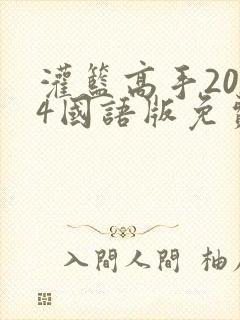 灌籃高手20
4國語版免
入間人間 柚